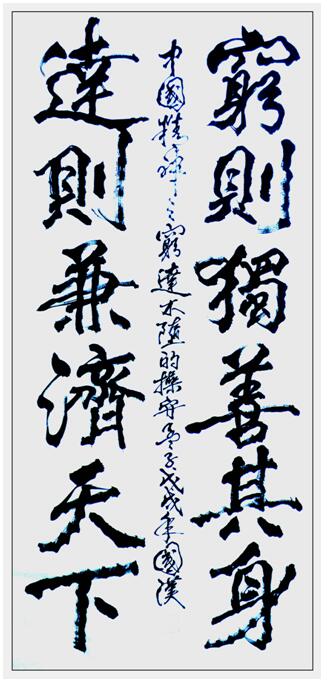 窮則獨善其身
中國精神窮達的操守孟子戊戌國漢
達則兼濟天下